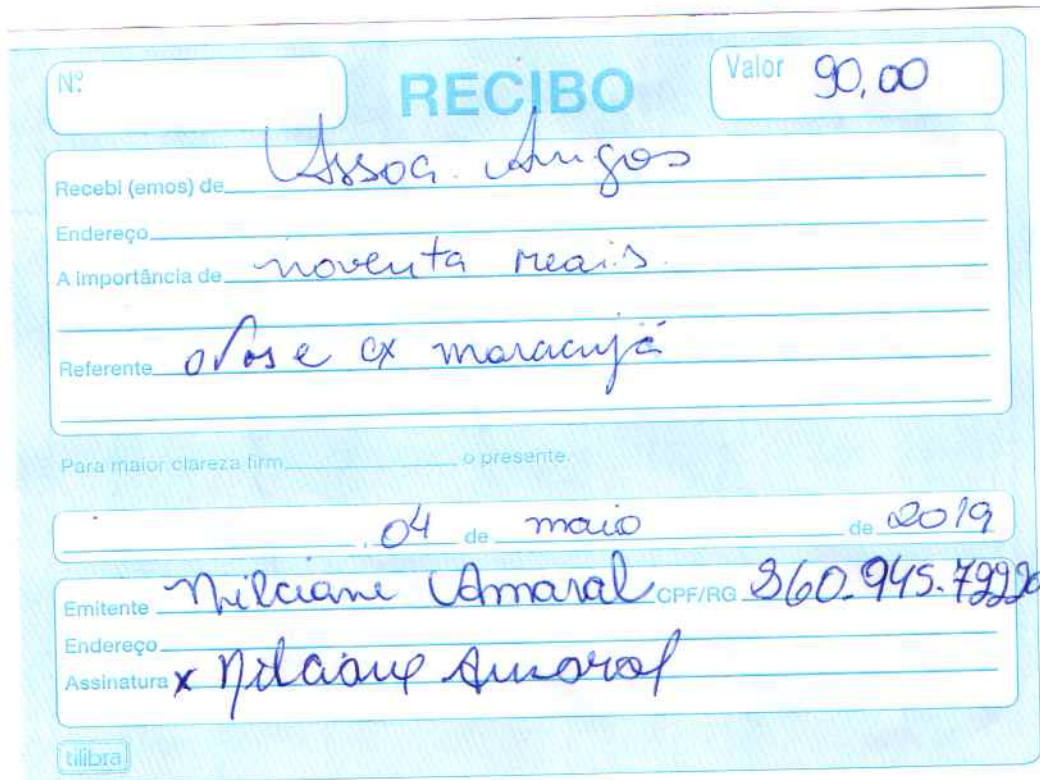 Nº
RECIBO
Valor 90,00
Recebi (emos) de Assoc. Amigos
Endereço
A importância de noventa reais.
Referente ovos e cx maracujá
Para maior clareza firm o presente.
, 04 de maio de 2019
Emitente Nilciane Amaral CPF/RG
Endereço
Assinatura x Nilciane Amaral
tilibra